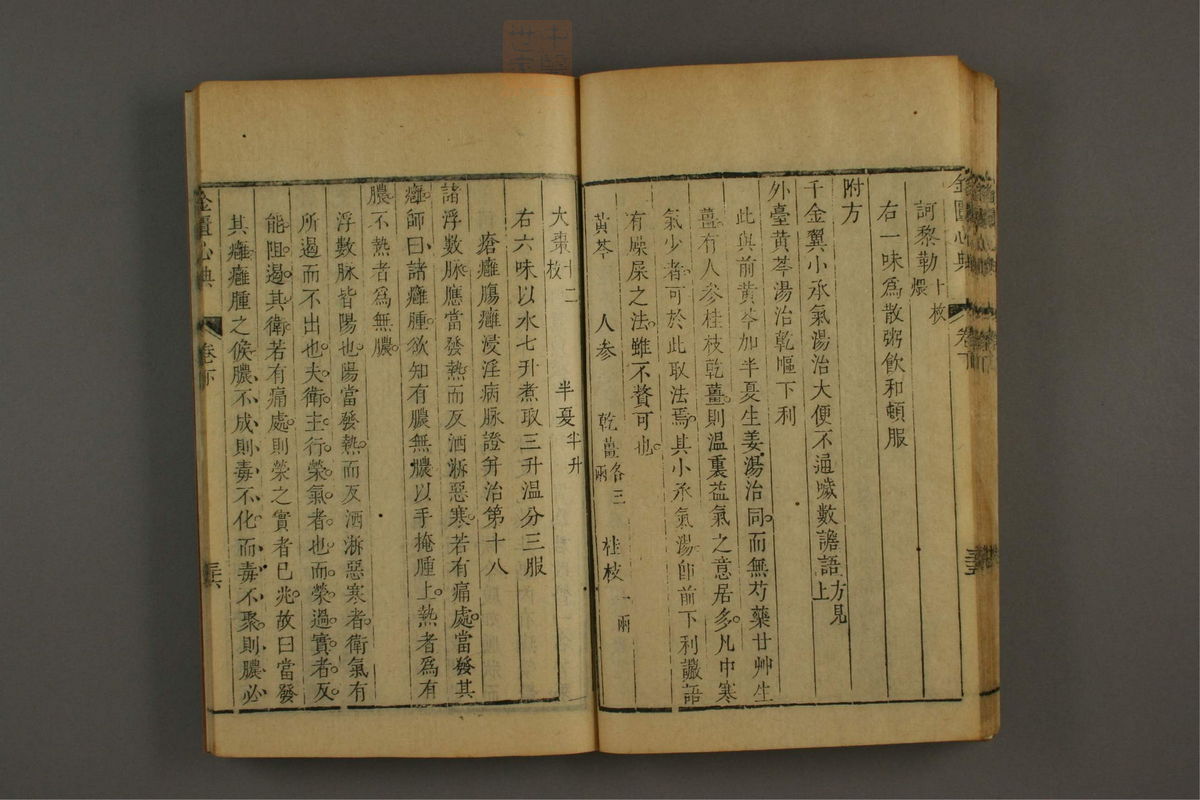 金匱心典 卷下
訶黎勒十枚煨
右一味爲散粥飲和頓服
附方
千金翼小承氣湯治大便不通噦數譫語方見上
外臺黃芩湯治乾嘔下利
此與前黃芩加半夏生姜湯治同而無芍藥甘艸生
薑有人參桂枝乾薑則溫裏益氣之意居多凡中寒
氣少者可於此取法焉其小承氣湯卽前下利譫語
有燥屎之法雖不贅可也
黃芩 人參 乾薑各三兩 桂枝一兩
大棗十二枚 半夏半升
右六味以水七升煮取三升溫分三服
瘡癰腸癰浸淫病脉證并治第十八
諸浮數脉應當發熱而反洒淅惡寒若有痛處當發其
癰師曰諸癰腫欲知有膿無膿以手掩腫上熱者爲有
膿不熱者爲無膿
浮數脉皆陽也陽當發熱而反洒淅惡寒者衛氣有
所遏而不出也夫衛主行榮氣者也而榮過實者反
能阻遏其衛若有痛處則榮之實者已兆故曰當發
其癰癰腫之候膿不成則毒不化而毒不聚則膿必
金匱心典 卷下 三六